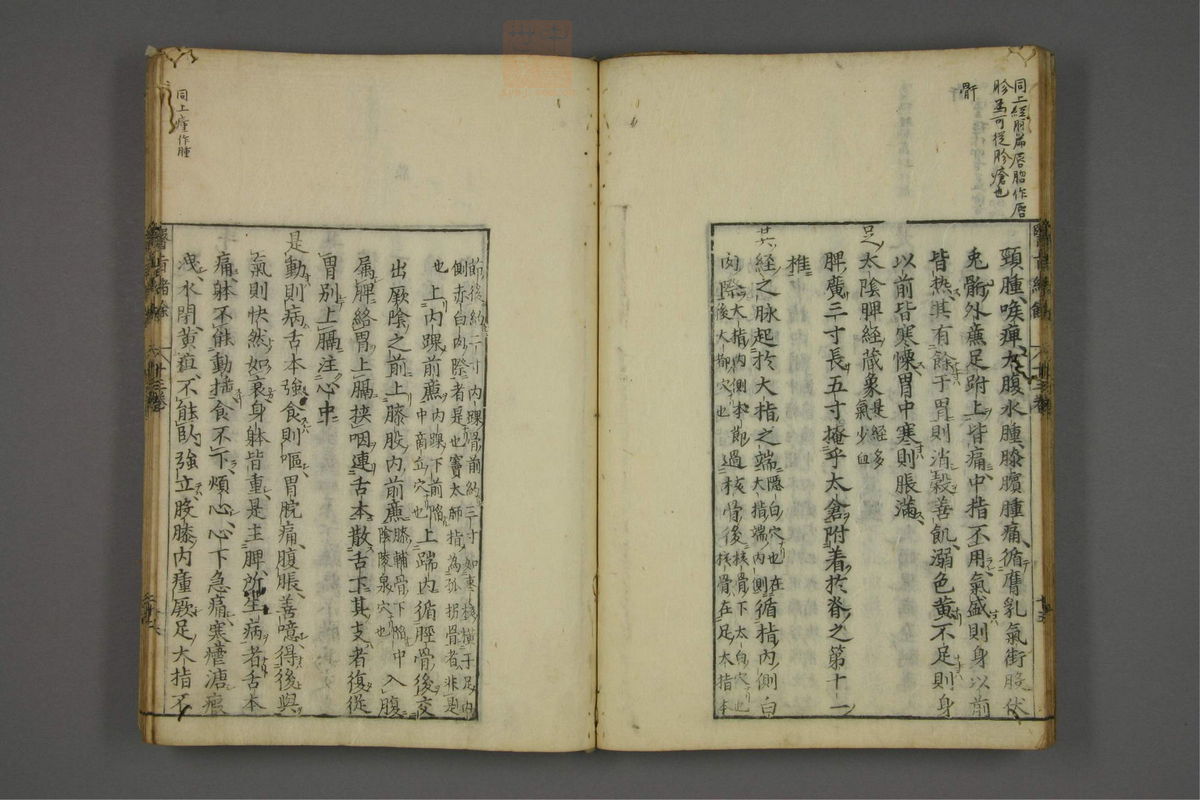 同上経脈篇唇胗作唇
胗恐可従胗瘡也
骭
頸腫喉痺大腹水腫膝臏腫痛循膺乳氣街股伏
兎骭外廉足跗上皆痛中指不用氣盛則身以前
皆热其有餘于胃則消穀善飢溺色黄不足則身
以前皆寒慄胃中寒則脹滿
足太陰脾經蔵象是經多氣少血
脾廣三寸長五寸掩乎太倉附着於脊之第十一
推
其經之脉起於大指之端隱白穴也在大指端内側循指内側白
肉際大指内側本節後大都穴也過核骨後核骨下太白穴也核骨在足大指本
節後約一寸内踝骨前約三寸如棗核横于足内
側赤白肉際者是也竇太師指為孤拐骨者非是
也上内踝前廉内踝下前陷中商丘穴也上踹内循脛骨後交
出厥陰之前上膝股内前廉膝輔骨下陷中陰陵泉穴也入腹
属脾絡胃上膈挾咽連舌本散舌下其支者復從
胃別上膈注心中
是動則病舌本強食則嘔胃脘痛腹脹善噫得後與
氣則快然如衰身躰皆重是主脾所生病者舌本
痛躰不能動揺食不下煩心心下急痛寒瘧溏瘕
洩水閉黄疸不能臥強立股膝内瘇厥足大指不
同上瘇作腫